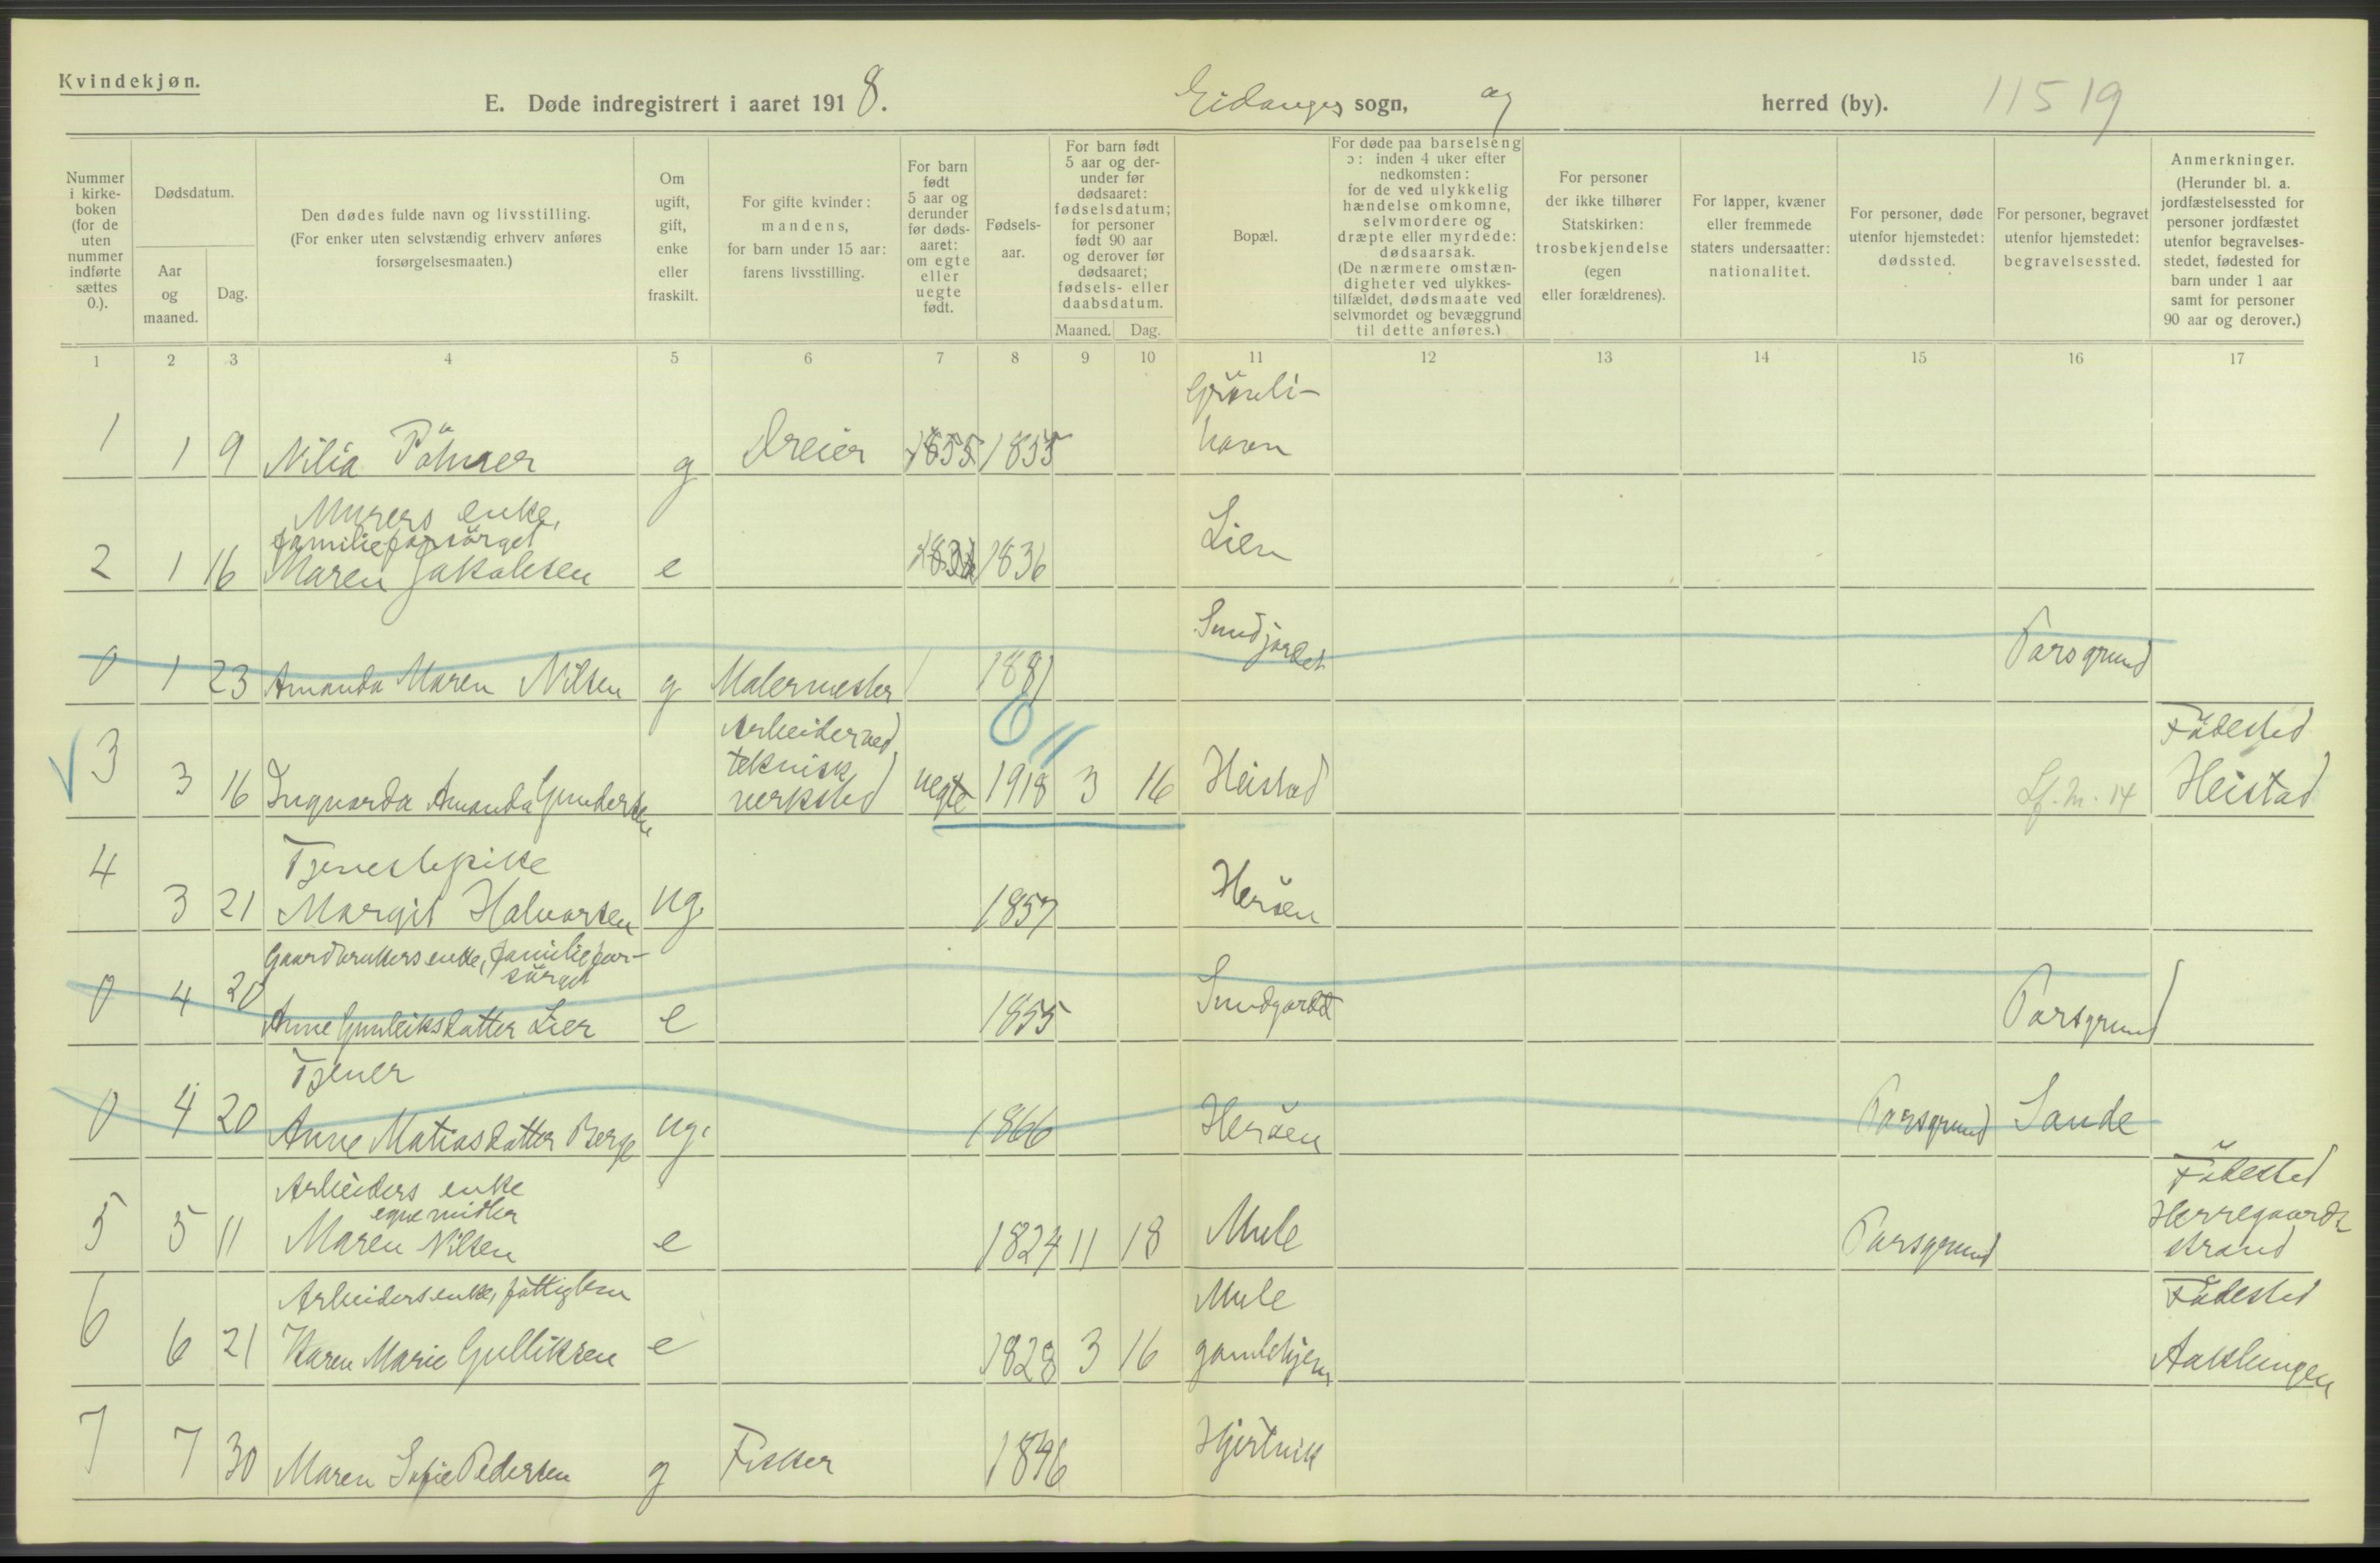 Kvindekjøn.
E. Døde indregistrert i aaret 1918. Eidanger sogn, og herred (by). 11519
Nummer i kirkeboken (for de uten nummer indførte sættes 0.).
Dødsdatum.
Aar og maaned.
Dag.
Den dødes fulde navn og livsstilling.
(For enker uten selvstændig erhverv anføres forsørgelsesmaaten.)
Om ugift, gift, enke eller fraskilt.
For gifte kvinder: mandens, for barn under 15 aar: farens livsstilling.
For barn født 5 aar og derunder før dødsaaret: om egte eller uegte født.
Fødselsaar.
For barn født 5 aar og derunder før dødsaaret: fødselsdatum; for personer født 90 aar og derover før dødsaaret; fødsels- eller daabsdatum.
Maaned. Dag.
Bopæl.
For døde paa barselseng ɔ: inden 4 uker efter nedkomsten: for de ved ulykkelig hændelse omkomne, selvmordere og dræpte eller myrdede: dødsaarsak.
(De nærmere omstændigheter ved ulykkestilfældet, dødsmaate ved selvmordet og bevæggrund til dette anføres.)
For personer der ikke tilhører Statskirken: trosbekjendelse (egen eller forældrenes).
For lapper, kvæner eller fremmede staters undersaatter: nationalitet.
For personer, døde utenfor hjemstedet: dødssted.
For personer, begravet utenfor hjemstedet: begravelsessted.
Anmerkninger.
(Herunder bl. a. jordfæstelsessted for personer jordfæstet utenfor begravelsesstedet, fødested for barn under 1 aar samt for personer 90 aar og derover.)
1 2 3 4 5 6 7 8 9 10 11 12 13 14 15 16 17
1 1 9 Nilia g Dreier 1855 1855 havn
Murers enke,
familieforsörget
2 1 16 Maren Jakobsen e 1836 Lien
0 1 23 Amanda Maren Nilsen g Malermester 1881 Sundjordet Porsgrund
Arbeider ved
teknisk
verksted
Födested
3 3 16 Ingvarda Amanda Gundersen uegte 1918 3 16 Heistad Heistad
Tjenestepike
4 3 21 Margit Halvorsen ug. 1857 Heröen
Gaardbrukers enke, familiefor-
sörget
0 4 20 Anne Gunleiksdatter Lier e 1855 Sundjordet Porsgrund
Tjener
0 4 20 Anne Matiasdatter Berge ug. 1866 Heröen Porsgrund Sande
Arbeiders enke
egne midler
Födested
5 5 11 Maren Nilsen e 1824 11 18 Mule Porsgrund Herregaards
strand
Arbeiders enke, fattiglem
Mule
Födested
6 6 21 Karen Marie Gulliksen e 1828 3 16 gamlehjem Aaklungen
7 7 30 Maren Sofie Pedersen g Fisker 1846 Hjertvik